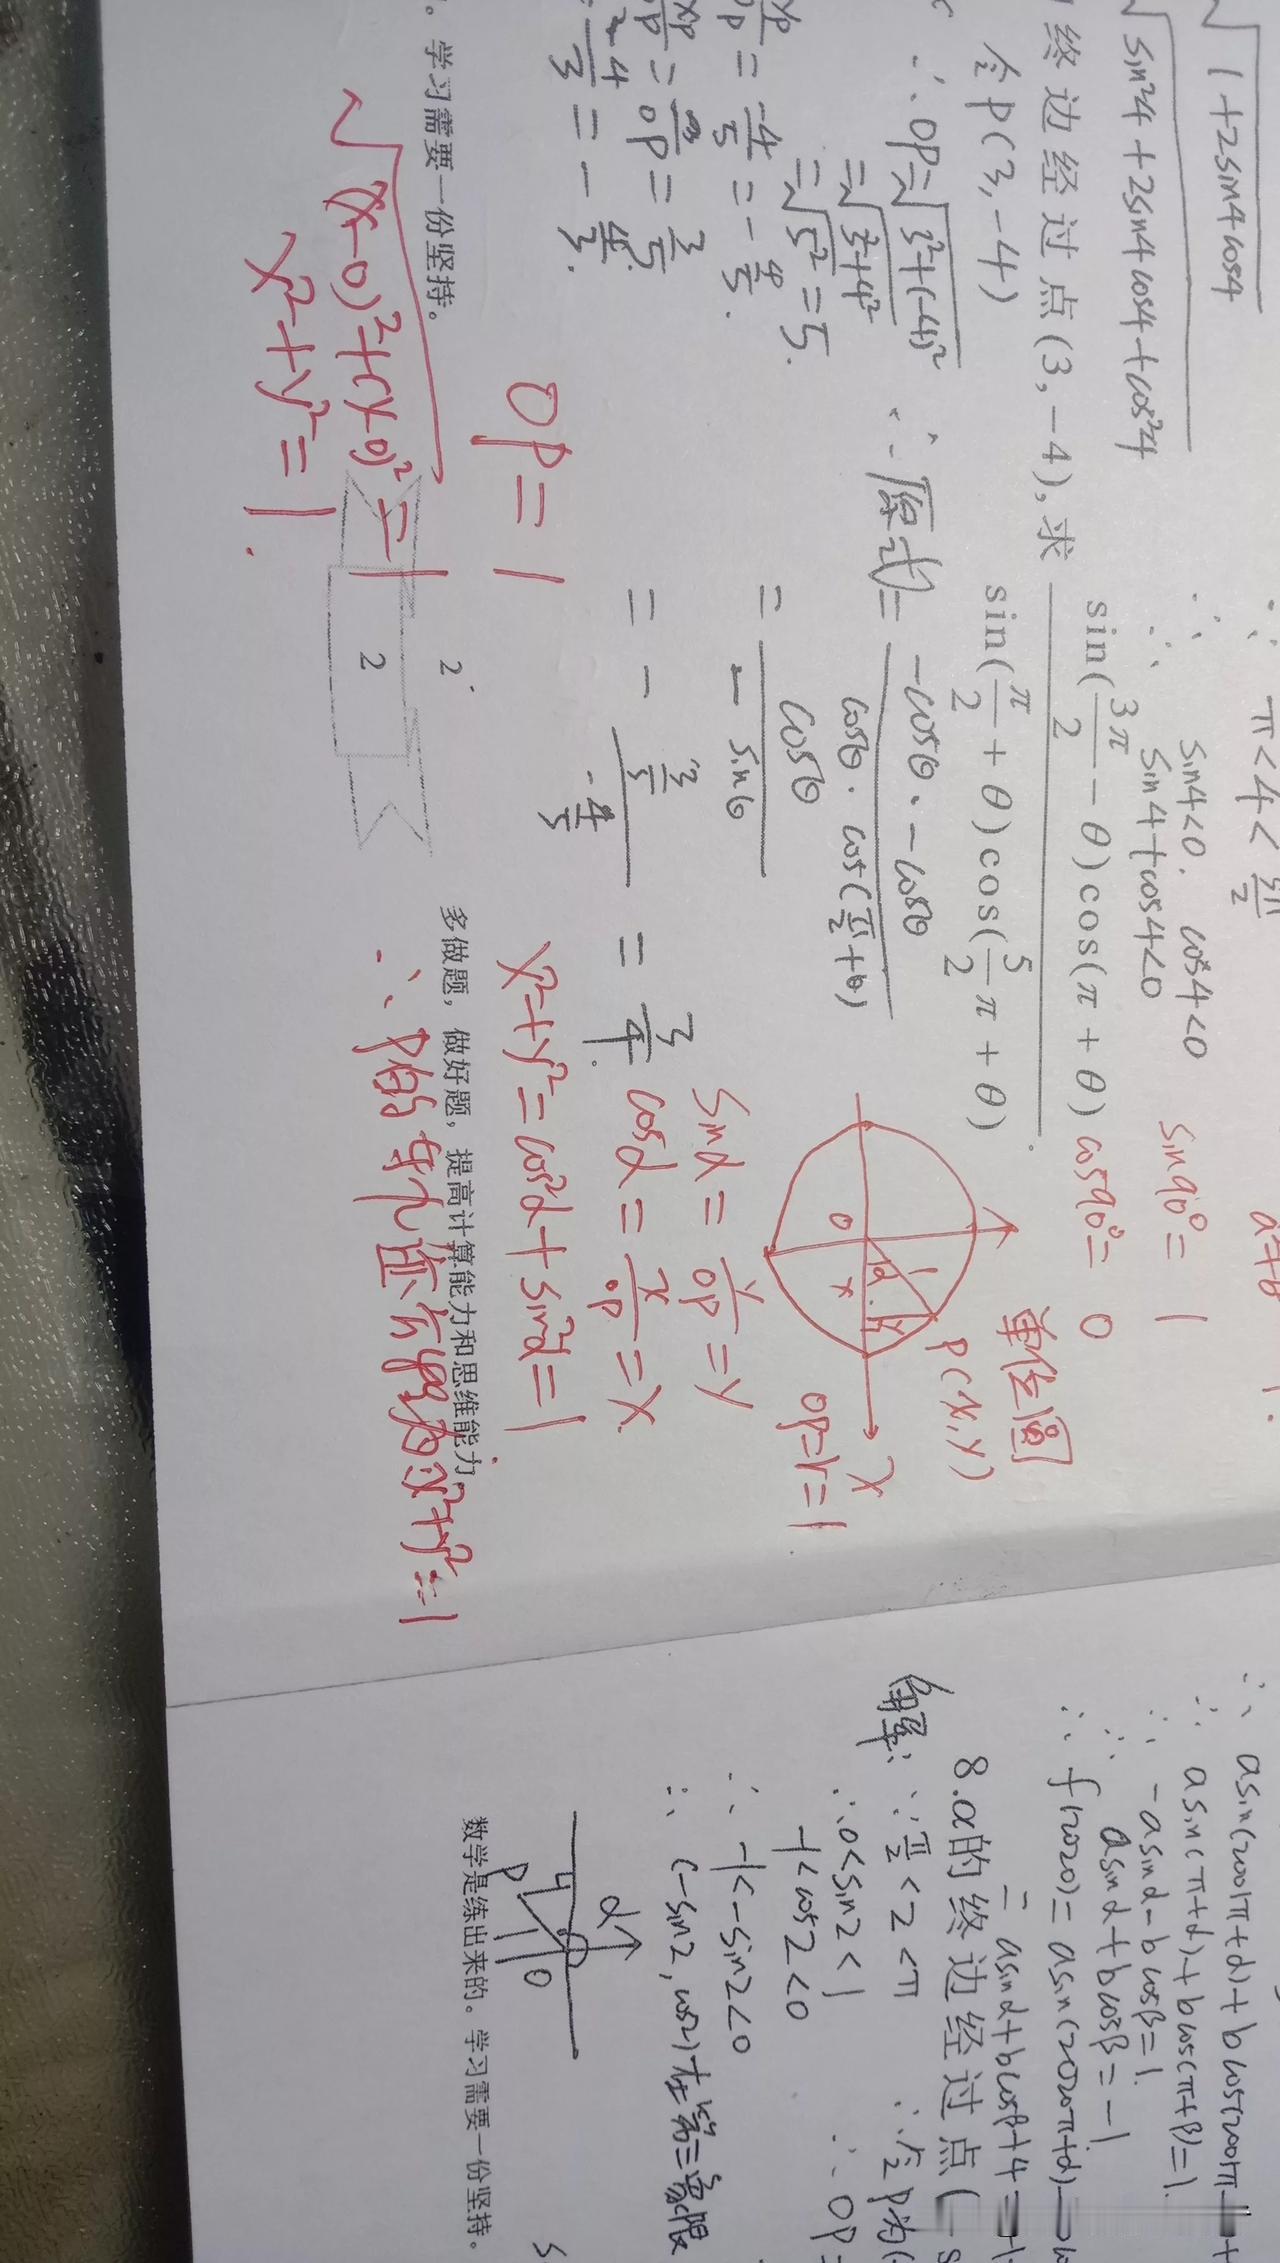 √1+2sin4cos4
√sin²4+2sin4cos4+cos²4
∵ π<4<3π/2
∴ sin4<0. cos4<0
∴ sin4+cos4<0
sin90°=1
cos90°=0
终边经过点(3,-4),求 sin(3π/2-θ)cos(π+θ) / sin(π/2+θ)cos(5/2π+θ).
令P(3,-4)
∴OP=√3²+(-4)²
=√3²+4²
=√5²=5.
=-4/5=-4/5.
=3/OP=3/5.
-4/3=-4/3.
∴原式=-cosθ·-cosθ / cosθ·cos(π/2+θ)
=cosθ/-sinθ
=-3/5 / -4/5=3/4.
单位圆
P(x,y)
1
α
y
O
x
x
OP=r=1
sinα=y/OP=y
cosα=x/OP=x
x²+y²=cos²α+sin²α=1
∴P的轨迹方程为x²+y²=1
OP=1
√(x-0)²+(y-0)²=1
x²+y²=1.
学习需要一份坚持。
2
2
多做题,做好题,提高计算能力和思维能力。
∴ asin(2001π+α)+bcos(2001π
∴ asin(π+α)+bcos(π+β)=1.
∴ -asinα-bcosβ=1.
∴ asinα+bcosβ=-1.
∴ f(2020)=asin(2020π+α)
=asinα+bcosβ+4=
8.α的终边经过点(-s
解:∵π/2<2<π
∴0<sin2<1
-1<cos2<0
∴ -1<-sin2<0
∴ (-sin2,cos2)在第三象限
∴ P为(
∴ OP=
α
P
O
数学是练出来的。学习需要一份坚持。